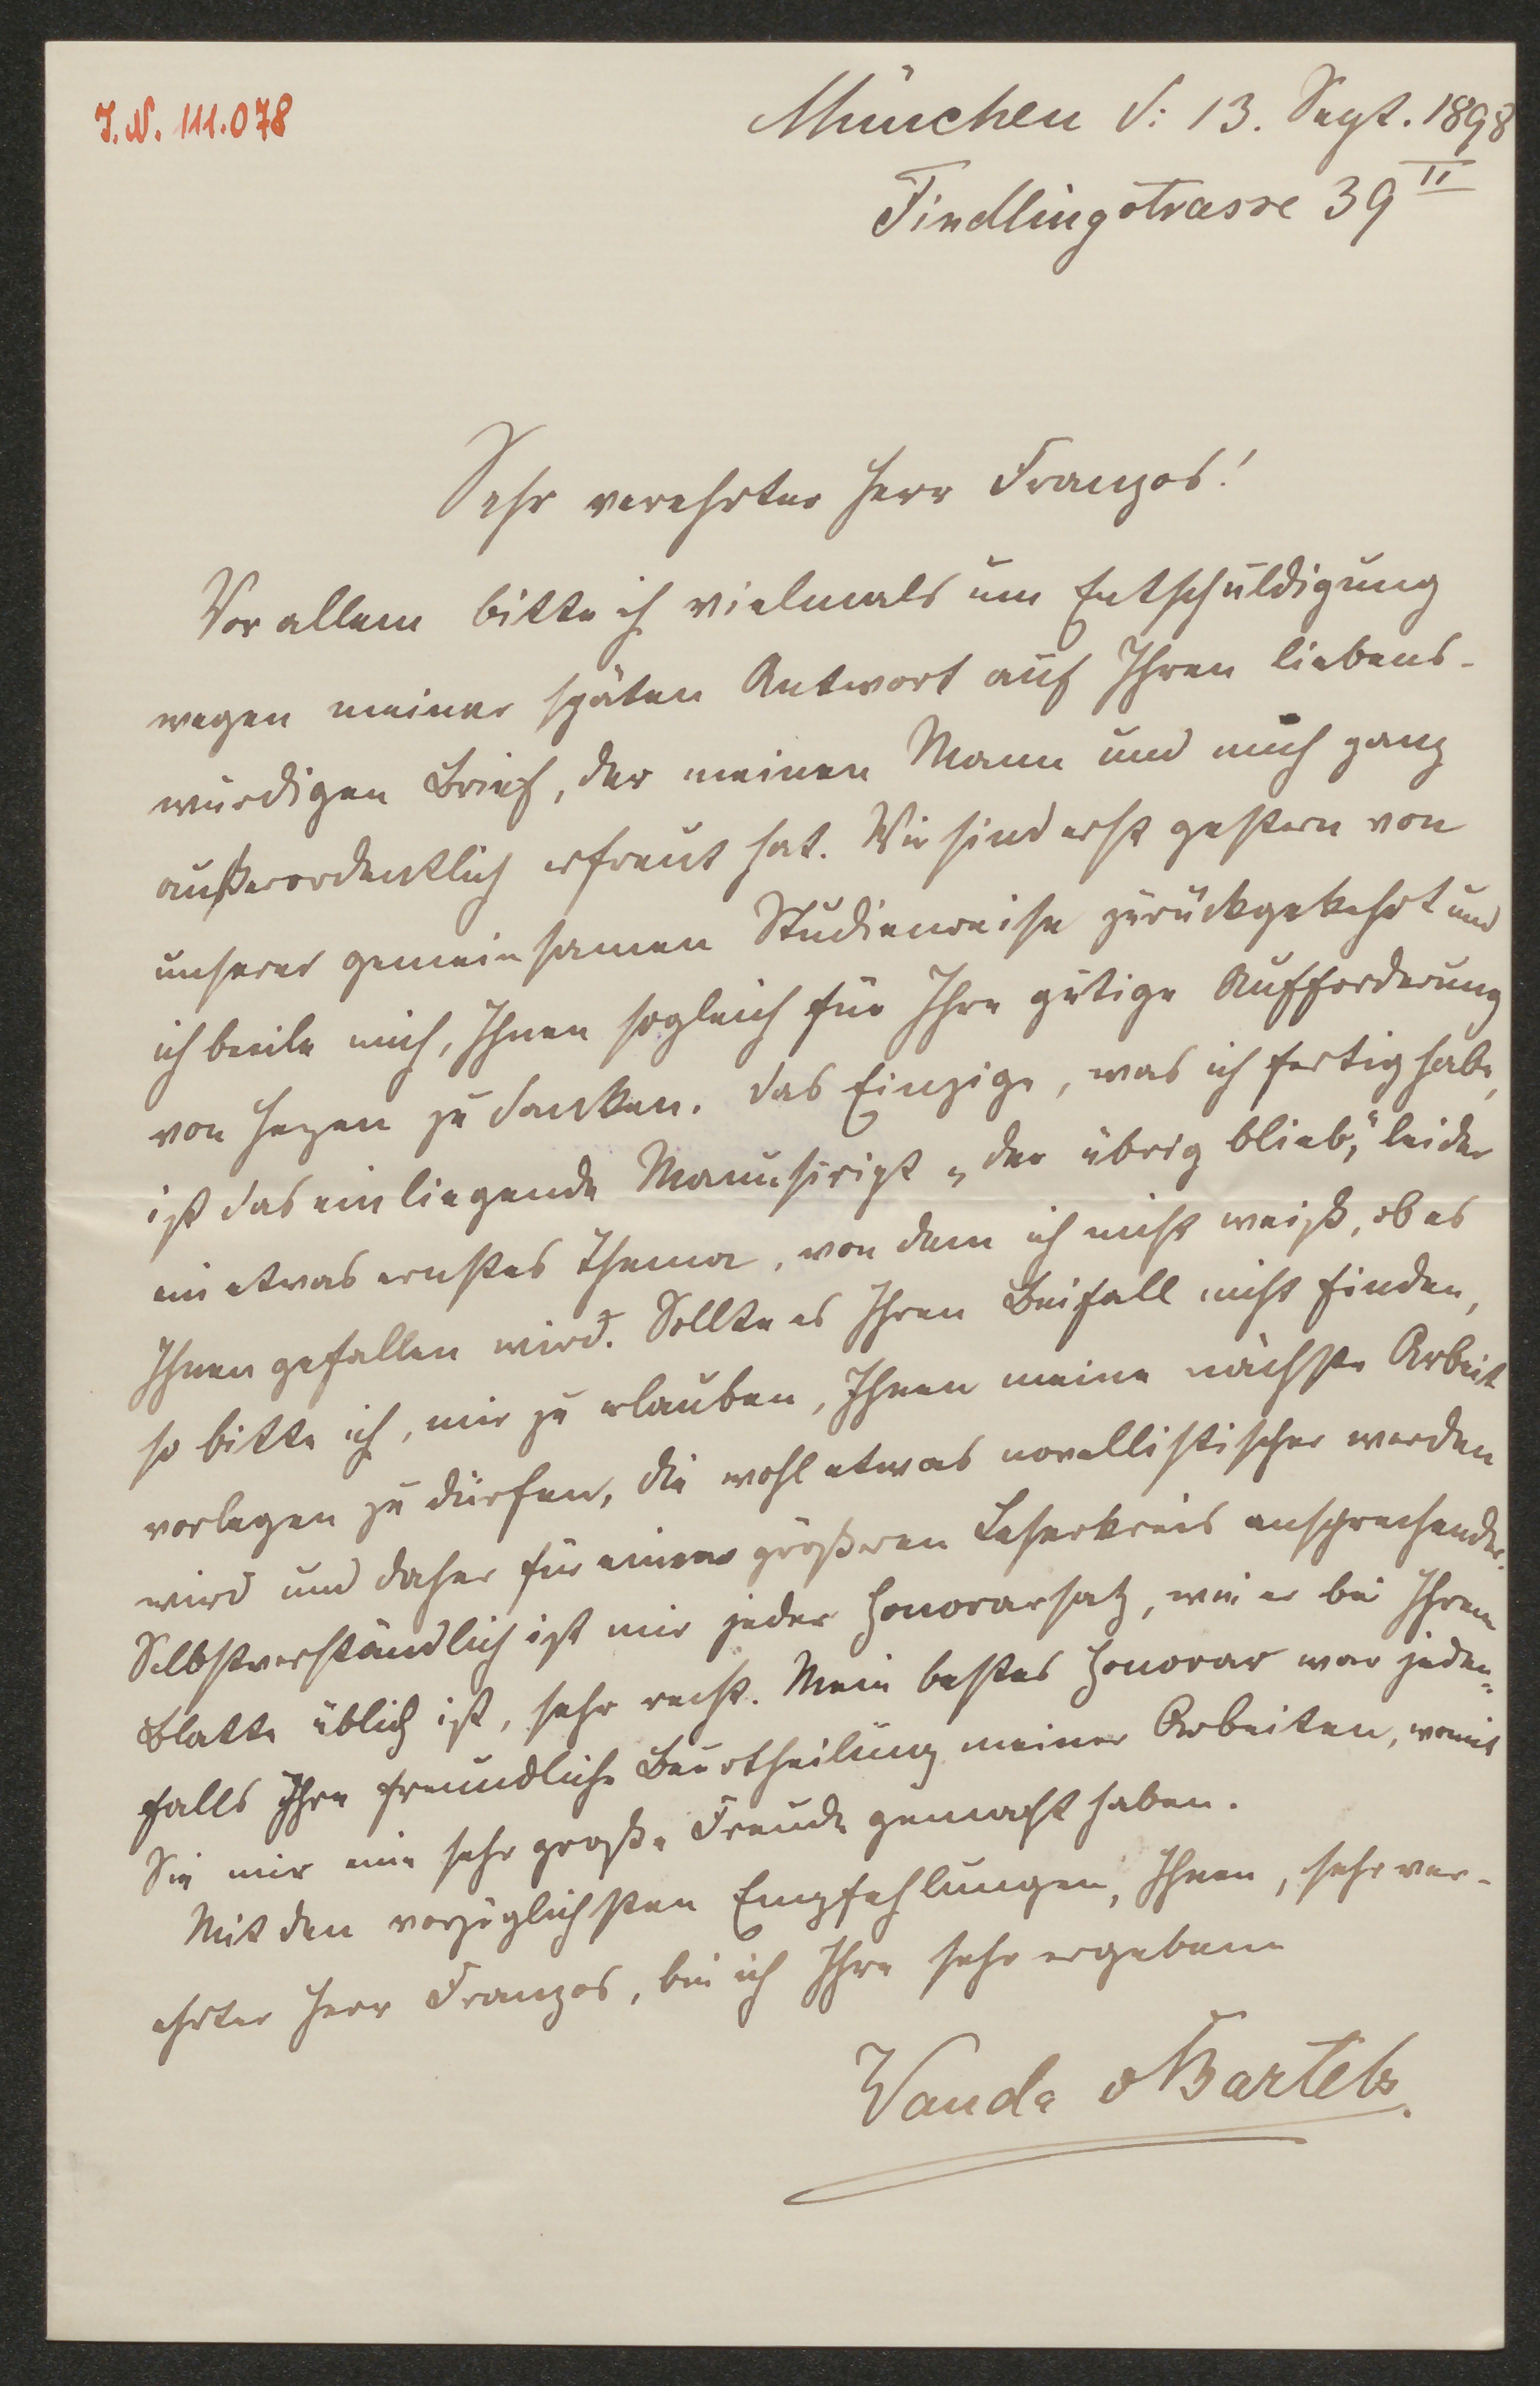 J. N. 111.078
München d: 13. Sept. 1898
Findlingstrasse 39 II
Sehr verehrter Herr Franzos!
Vor allem bitte ich vielmals um Entschuldigung
wegen meiner späten Antwort auf Ihren liebens-
würdigen Brief, der meinen Mann und mich ganz
außerordentlich erfreut hat. Wir sind erst gestern von
unserer gemeinsamen Studienreise zurückgekehrt und
ich beeile mich, Ihnen sogleich für Ihre gütige Aufforderung
von Herzen zu danken. Das Einzige, was ich fertig habe,
ist das einliegende Manuscript „der übrig blieb“, leider
ein etwas ernstes Thema, von dem ich nicht weiß, ob es
Ihnen gefallen wird. Sollte es Ihren Beifall nicht finden,
so bitte ich, mir zu erlauben, Ihnen meine nächste Arbeit
vorlegen zu dürfen, die wohl etwas novellistischer werden
wird und daher für einen größeren Leserkreis ansprechender.
Selbstverständlich ist mir jeder Honorarsatz, wie er bei Ihrem
Blatte üblich ist, sehr recht. Mein bestes Honorar war jeden-
falls Ihre freundliche Beurtheilung meiner Arbeiten, womit
Sie mir eine sehr große Freude gemacht haben.
Mit den vorzüglichsten Empfehlungen, Ihnen, sehr ver-
ehrter Herr Franzos, bin ich Ihre sehr ergebene
Wanda v Bartels.